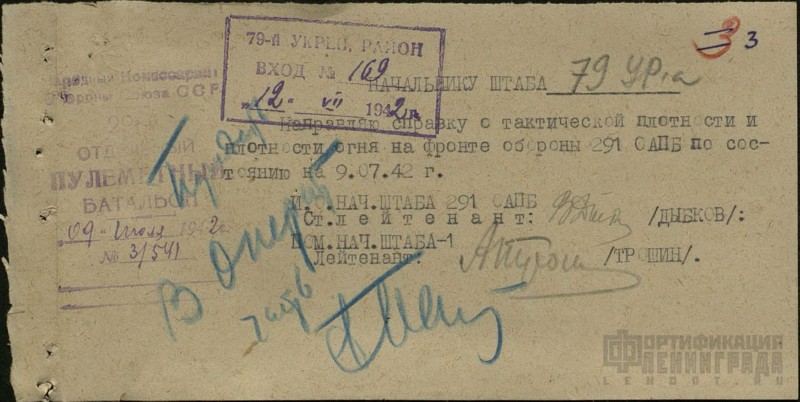 3 3
79-й УКРЕП. РАЙОН
ВХОД № 169
"12" VII 1942 г.
НАЧАЛЬНИКУ ШТАБА 79 УР-а
Народный Комиссариат
Обороны Союза ССР
ОТДЕЛЬНЫЙ
ПУЛЕМЕТНЫЙ
БАТАЛЬОН
"09" июля 1942 г.
№ 3/541
Направляю справку о тактической плотности и
плотности огня на фронте обороны 291 ОАПБ по сос-
тоянию на 9.07.42 г.
НАЧ.ШТАБА 291 ОАПБ
Ст.лейтенант: /ДЫБКОВ/:
ПОМ.НАЧ.ШТАБА-1
Лейтенант: /ТРОШИН/.
В опер
часть
ФОРТИФИКАЦИЯ
ЛЕНИНГРАДА
LENDOT.RU